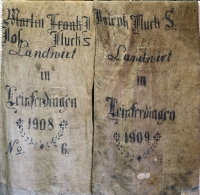 Martin Frank J.
Jos. Fluck S
Landwirt
in
Leipferdingen
1908
No. 6.
Joseph Fluck S.
Landwirt
in
Leipferdingen
1909